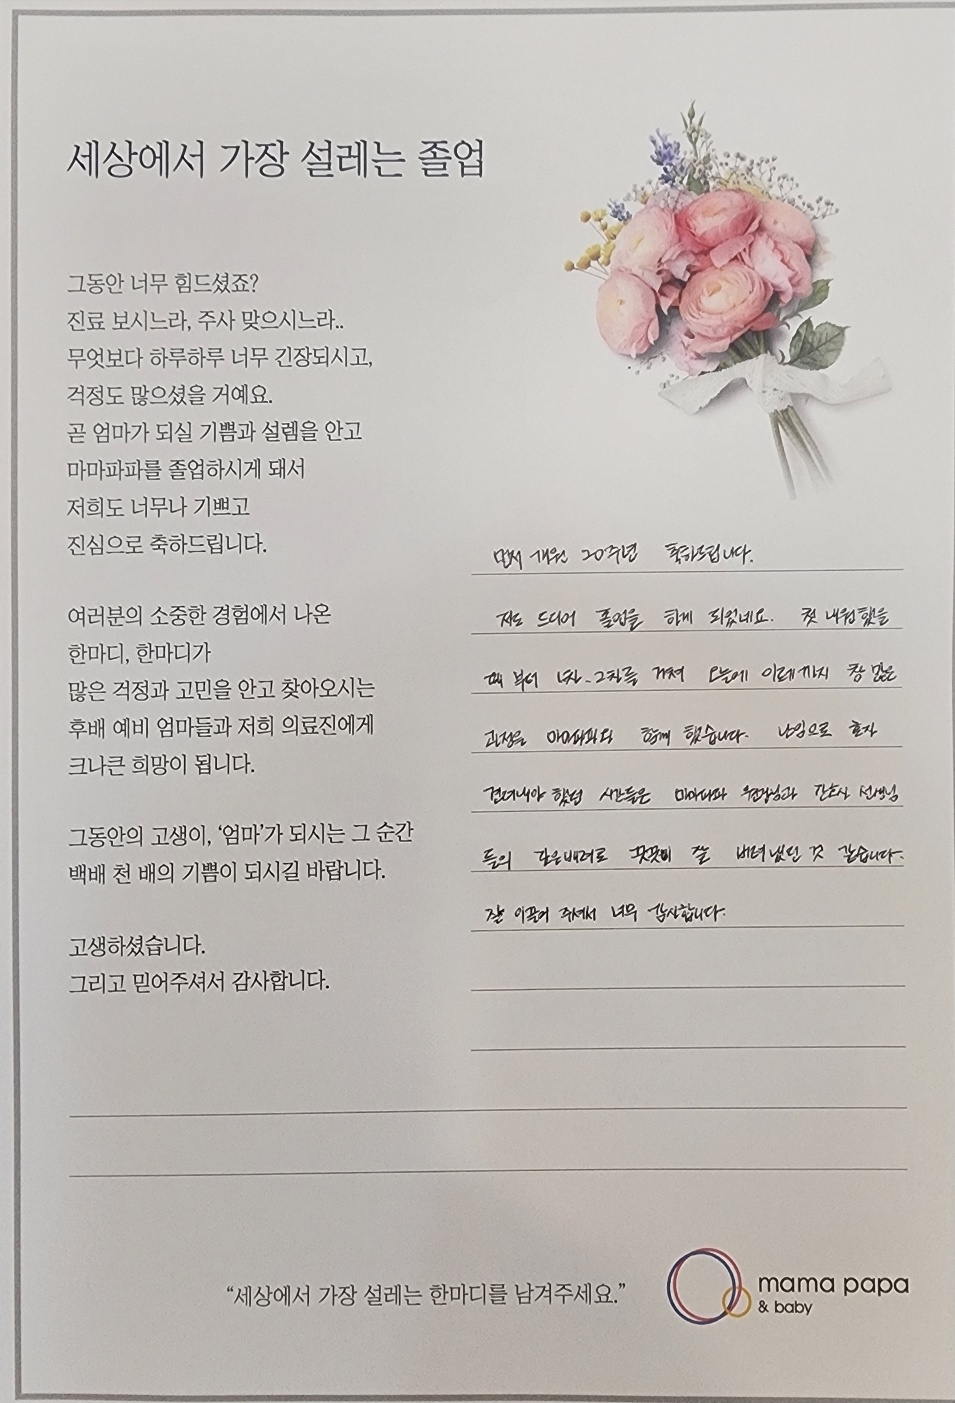 세상에서 가장 설레는 졸업
그동안 너무 힘드셨죠?
진료 보시느라, 주사 맞으시느라..
무엇보다 하루하루 너무 긴장되시고,
걱정도 많으셨을 거예요.
곧 엄마가 되실 기쁨과 설렘을 안고
마마파파를 졸업하시게 돼서
저희도 너무나 기쁘고
진심으로 축하드립니다.
여러분의 소중한 경험에서 나온
한마디, 한마디가
많은 걱정과 고민을 안고 찾아오시는
후배 예비 엄마들과 저희 의료진에게
크나큰 희망이 됩니다.
그동안의 고생이, ‘엄마’가 되시는 그 순간
백배 천 배의 기쁨이 되시길 바랍니다.
고생하셨습니다.
그리고 믿어주셔서 감사합니다.
먼저 개원 20주년 축하드립니다.
저도 드디어 졸업을 하게 되었네요. 첫 내원했을
때 부터 난장-고장를 거쳐 오늘에 이르기까지 참 많은
과정을 마마파파와 함께 했습니다. 난임으로 혼자
견뎌내야 했던 시간들은 마마파파 원장님과 간호사 선생님
들의 깊은배려로 꿋꿋이 잘 버텨냈던 것 같습니다.
잘 이끌어 주셔서 너무 감사합니다.
“세상에서 가장 설레는 한마디를 남겨주세요.”
mama papa
& baby